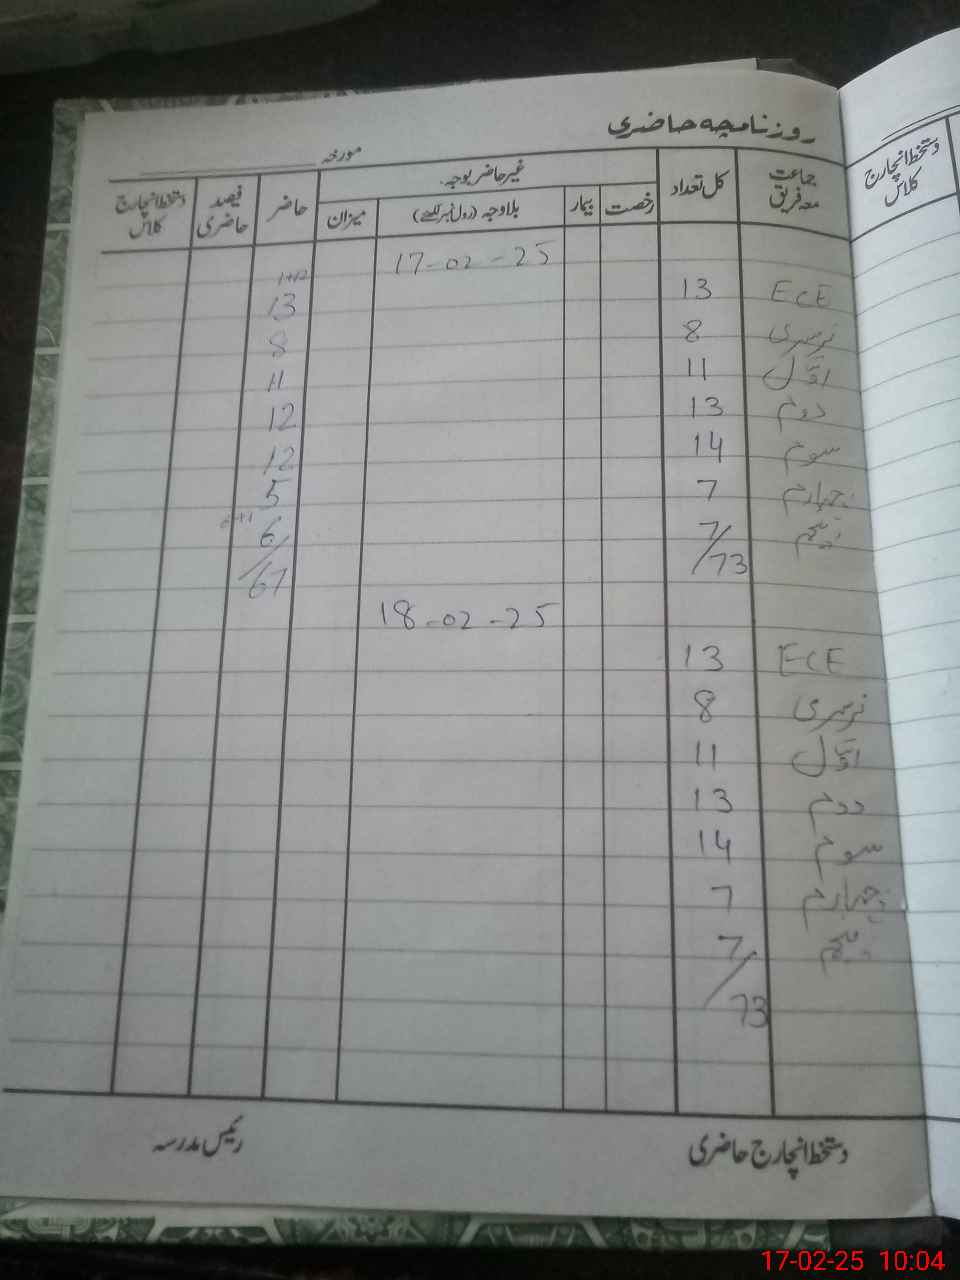 روزنامچہ حاضری
مورخہ
جماعت معہ فریق کل تعداد غیر حاضر بوجہ حاضر فیصد حاضری دستخط انچارج کلاس
رخصت بیمار بلاوجہ (رول نمبر لکھیے) میزان
دستخط انچارج کلاس
17-02-25
1+12
ECE 13 13
نرسری 8 8
اوّل 11 11
دوم 13 12
سوم 14 12
چہارم 7 5
پنجم 7 6
73 67
18-02-25
ECE 13
نرسری 8
اوّل 11
دوم 13
سوم 14
چہارم 7
پنجم 7
73
دستخط انچارج حاضری رئیس مدرسہ
17-02-25 10:04